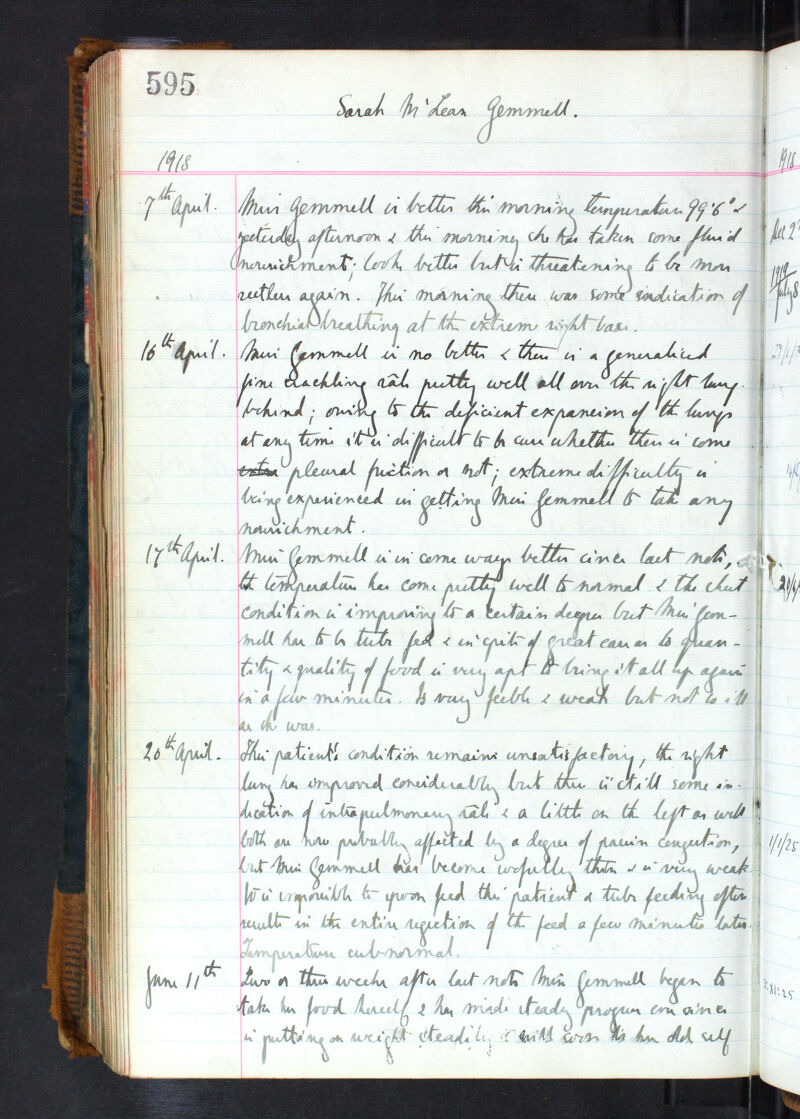 595
Sarah McLean Gemmell.
1918
7th April. Miss Gemmell is better this morning temperature 99.6° &
yesterday afternoon & this morning she has taken some fluid
nourishment; looks better but is threatening to be more
restless again. This morning there was some indication of
bronchial breathing at the extreme right base.
16th April. Miss Gemmell is no better & there is a generalised
fine crackling râle pretty well all over the right lung
behind; owing to the deficient expansion of the lungs
at any time it is difficult to be sure whether there is some
extra pleural friction or not; extreme difficulty is
being experienced in getting Miss Gemmell to take any
nourishment.
17th April. Miss Gemmell is in some ways better since last note,
temperature has come pretty well to normal & the chest
condition is improving to a certain degree but Miss Gem-
mell has to be tube fed & in spite of great care as to quan-
tity & quality of food is very apt to bring it all up again
in a few minutes. Is very feeble & weak but not so ill
as she was.
20th April. This patient's condition remains unsatisfactory, the right
lung has improved considerably but there is still some in-
dication of intrapulmonary râle & a little on the left as well
both are now probably affected by a degree of passive congestion,
but Miss Gemmell has become woefully thin & is very weak
It is impossible to spoon feed this patient & tube feeding often
results in the entire rejection of the feed a few minutes later.
Temperature subnormal.
June 11th Two or three weeks after last note Miss Gemmell began to
take her food herself & has made steady progress ever since
is putting on weight steadily & will soon be her old self
1918
Dec 2
1919
July 8
1/1/25